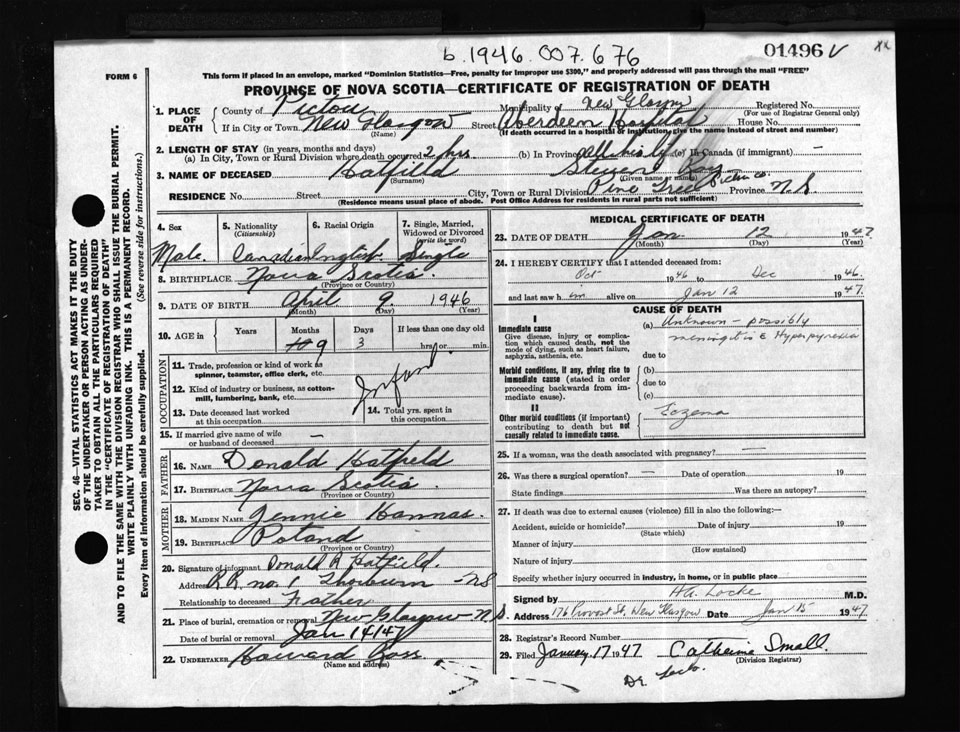 b.1946.007.676
01496
FORM 6
This form if placed in an envelope, marked "Dominion Statistics—Free, penalty for improper use $300," and properly addressed will pass through the mail "FREE"
PROVINCE OF NOVA SCOTIA—CERTIFICATE OF REGISTRATION OF DEATH
1. PLACE OF DEATH County of Pictou Municipality of New Glasgow Registered No.
(For use of Registrar General only)
If in City or Town New Glasgow Street Aberdeen Hospital House No.
(Name) (If death occurred in a hospital or institution, give the name instead of street and number)
2. LENGTH OF STAY (in years, months and days)
(a) In City, Town or Rural Division where death occurred 2 hrs. (b) In Province All his life (c) In Canada (if immigrant) —
3. NAME OF DECEASED Hatfield Steven
(Surname) (Given name or names)
RESIDENCE No. Street City, Town or Rural Division Pine Tree Pictou Co. Province N.S.
(Residence means usual place of abode. Post Office Address for residents in rural parts not sufficient)
4. Sex 5. Nationality (Citizenship) 6. Racial Origin 7. Single, Married, Widowed or Divorced (write the word)
Male Canadian English Single
8. BIRTHPLACE Nova Scotia
(Province or Country)
9. DATE OF BIRTH April 9 1946
(Month) (Day) (Year)
10. AGE in Years Months Days If less than one day old
9 3 hrs. or min.
OCCUPATION
11. Trade, profession or kind of work as spinner, teamster, office clerk, etc.
12. Kind of industry or business, as cotton-mill, lumbering, bank, etc.
Infant
13. Date deceased last worked at this occupation
14. Total yrs. spent in this occupation
15. If married give name of wife or husband of deceased —
FATHER
16. NAME Donald Hatfield
17. BIRTHPLACE Nova Scotia
(Province or Country)
MOTHER
18. MAIDEN NAME Jennie Hannas
19. BIRTHPLACE Poland
(Province or Country)
20. Signature of informant Donald R Hatfield.
Address R.R. no. 1 Thorburn - NS
Relationship to deceased Father
21. Place of burial, cremation or removal New Glasgow - N.S.
Date of burial or removal Jan 14/47
22. UNDERTAKER Howard Ross
(Name and address)
MEDICAL CERTIFICATE OF DEATH
23. DATE OF DEATH Jan. 12 1947.
(Month) (Day) (Year)
24. I HEREBY CERTIFY that I attended deceased from:
Oct 1946 to Dec 1946.
and last saw him alive on Jan 12 1947.
CAUSE OF DEATH
I
Immediate cause
Give disease, injury or complication which caused death, not the mode of dying, such as heart failure, asphyxia, asthenia, etc.
(a) Unknown - possibly
meningitis c Hyperpyrexia
due to
Morbid conditions, if any, giving rise to immediate cause (stated in order proceeding backwards from immediate cause).
(b)
due to
(c)
II
Other morbid conditions (if important) contributing to death but not causally related to immediate cause.
Eczema
25. If a woman, was the death associated with pregnancy? —
26. Was there a surgical operation? — Date of operation 19
State findings Was there an autopsy?
27. If death was due to external causes (violence) fill in also the following:—
Accident, suicide or homicide? Date of injury 19
(State which)
Manner of injury
(How sustained)
Nature of injury
Specify whether injury occurred in industry, in home, or in public place
Signed by H.A. Locke M.D.
Address 176 Provost St, New Glasgow Date Jan 15 1947
28. Registrar's Record Number
29. Filed January 17 1947 Catherine Small.
(Division Registrar)
SEC. 46—VITAL STATISTICS ACT MAKES IT THE DUTY
OF THE UNDERTAKER OR PERSON ACTING AS UNDER-
TAKER TO OBTAIN ALL THE PARTICULARS REQUIRED
IN THE "CERTIFICATE OF REGISTRATION OF DEATH"
AND TO FILE THE SAME WITH THE DIVISION REGISTRAR WHO SHALL ISSUE THE BURIAL PERMIT.
WRITE PLAINLY WITH UNFADING INK. THIS IS A PERMANENT RECORD.
Every item of information should be carefully supplied. (See reverse side for instructions.)